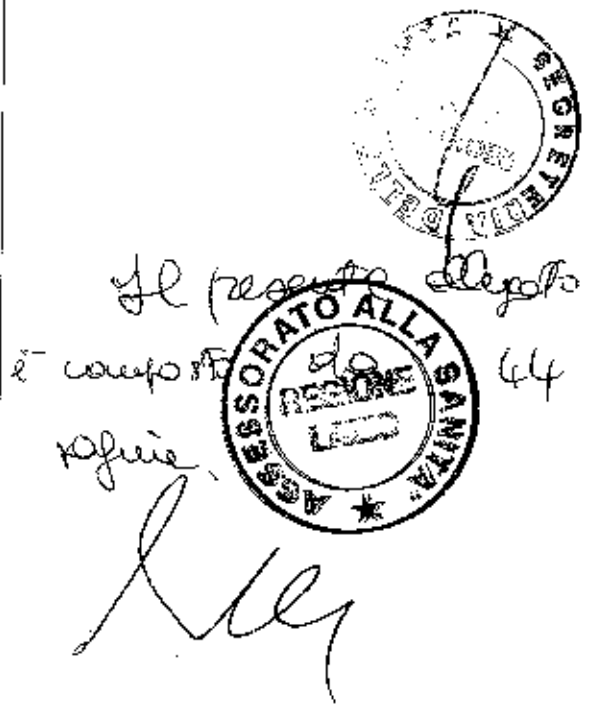 SEGRETERIA DELLA
Il presente allegato
è composto da 44
pagine.
ASSESSORATO ALLA SANITA'
REGIONE
LAZIO